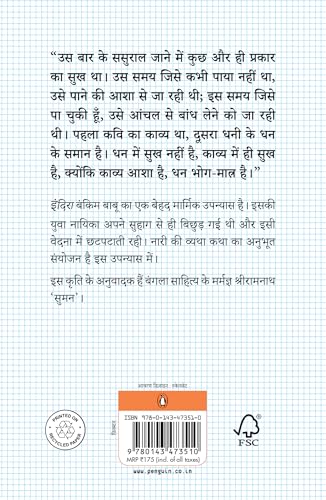 “उस बार के ससुराल जाने में कुछ और ही प्रकार
का सुख था। उस समय जिसे कभी पाया नहीं था,
उसे पाने की आशा से जा रही थी; इस समय जिसे
पा चुकी हूँ, उसे आंचल से बांध लेने को जा रही
थी। पहला कवि का काव्य था, दूसरा धनी के धन
के समान है। धन में सुख नहीं है, काव्य में ही सुख
है, क्योंकि काव्य आशा है, धन भोग-मात्र है।”
इंदिरा बंकिम बाबू का एक बेहद मार्मिक उपन्यास है। इसकी
युवा नायिका अपने सुहाग से ही बिछुड़ गई थी और इसी
वेदना में छटपटाती रही। नारी की व्यथा कथा का अनुभूत
संयोजन है इस उपन्यास में।
इस कृति के अनुवादक हैं बंगला साहित्य के मर्मज्ञ श्रीरामनाथ
‘सुमन’।
आवरण डिज़ाइन:
ISBN 978-0-143-47351-0
9 780143 473510
MRP ₹175 (incl. of all taxes)
www.penguin.co.in
PRINTED ON
RECYCLED PAPER
FSC